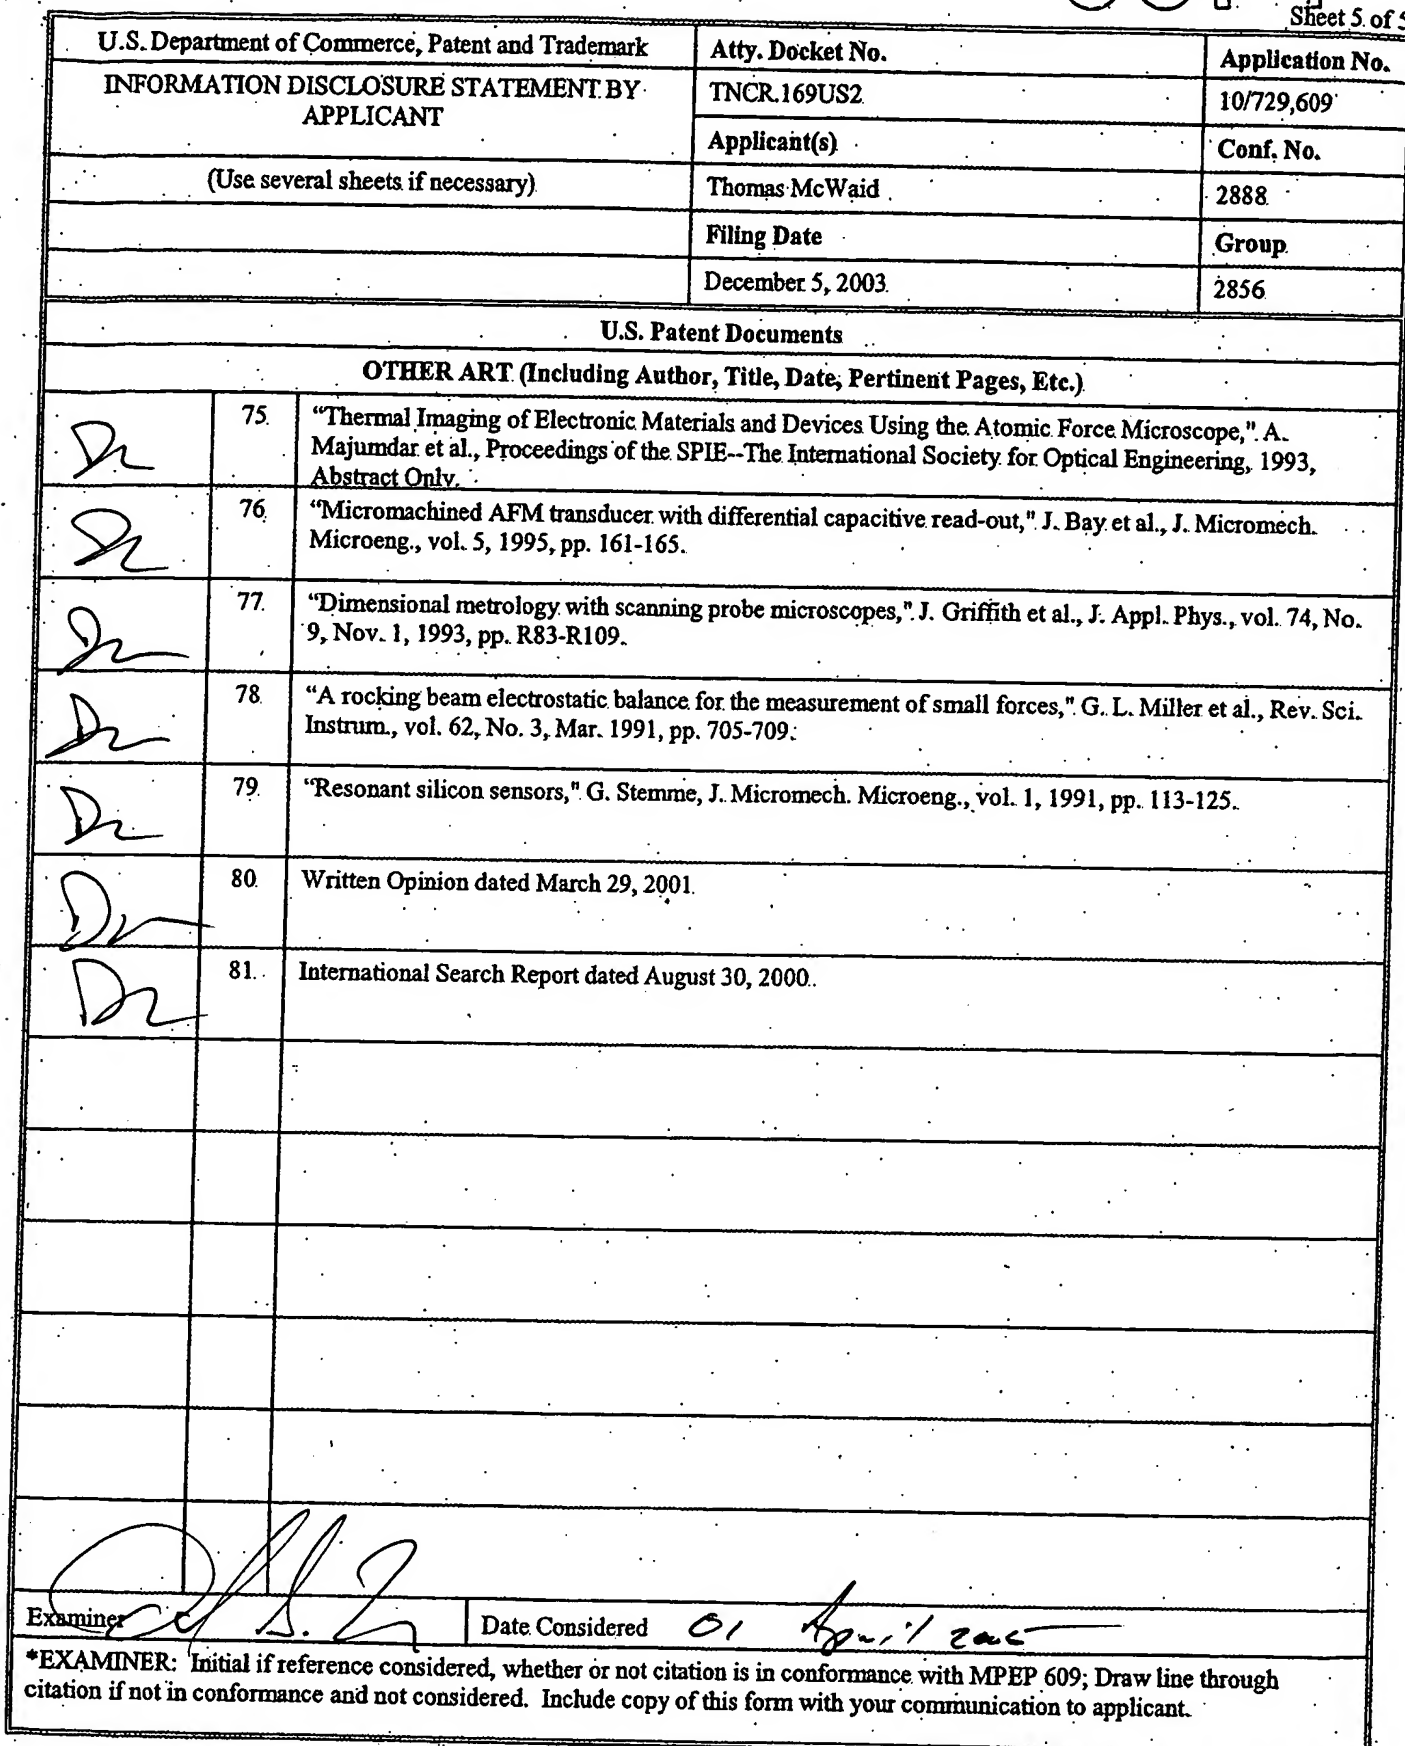 Sheet 5 of 5
U.S. Department of Commerce, Patent and Trademark
Atty. Docket No.
Application No.
INFORMATION DISCLOSURE STATEMENT BY
APPLICANT
TNCR.169US2
10/729,609
Applicant(s)
Conf. No.
(Use several sheets if necessary)
Thomas McWaid
2888
Filing Date
Group
December 5, 2003
2856
U.S. Patent Documents
OTHER ART (Including Author, Title, Date, Pertinent Pages, Etc.)
75. "Thermal Imaging of Electronic Materials and Devices Using the Atomic Force Microscope," A.
Majumdar et al., Proceedings of the SPIE--The International Society for Optical Engineering, 1993,
Abstract Only.
76. "Micromachined AFM transducer with differential capacitive read-out," J. Bay et al., J. Micromech.
Microeng., vol. 5, 1995, pp. 161-165.
77. "Dimensional metrology with scanning probe microscopes," J. Griffith et al., J. Appl. Phys., vol. 74, No.
9, Nov. 1, 1993, pp. R83-R109.
78. "A rocking beam electrostatic balance for the measurement of small forces," G. L. Miller et al., Rev. Sci.
Instrum., vol. 62, No. 3, Mar. 1991, pp. 705-709.
79. "Resonant silicon sensors," G. Stemme, J. Micromech. Microeng., vol. 1, 1991, pp. 113-125.
80. Written Opinion dated March 29, 2001.
81. International Search Report dated August 30, 2000.
Examiner
Date Considered 01 April 2005
*EXAMINER: Initial if reference considered, whether or not citation is in conformance with MPEP 609; Draw line through
citation if not in conformance and not considered. Include copy of this form with your communication to applicant.